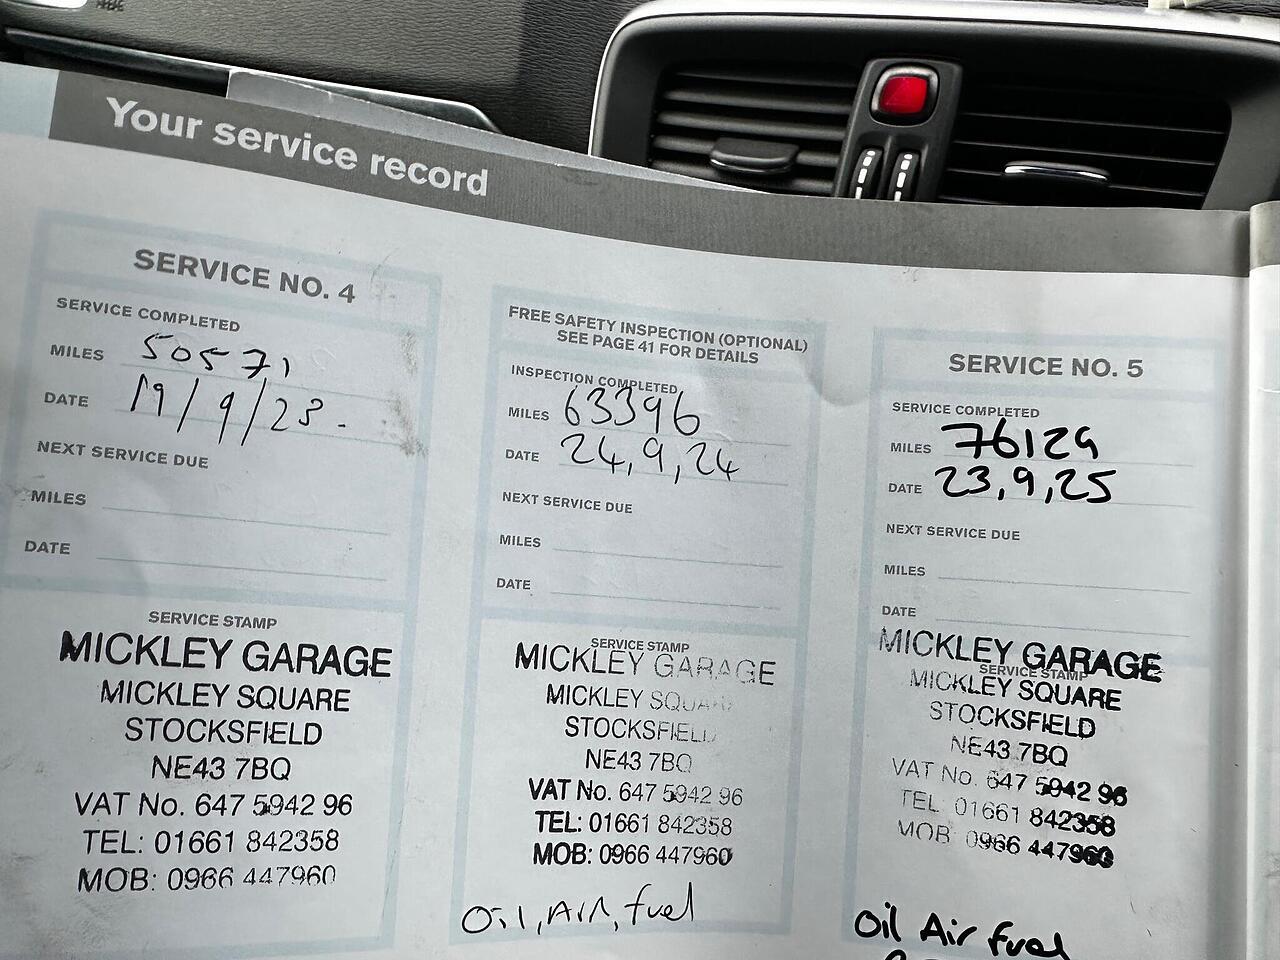 Your service record
SERVICE NO. 4
SERVICE COMPLETED
MILES 50571
DATE 19/9/23.
NEXT SERVICE DUE
MILES
DATE
SERVICE STAMP
MICKLEY GARAGE
MICKLEY SQUARE
STOCKSFIELD
NE43 7BQ
VAT No. 647 5942 96
TEL: 01661 842358
MOB: 0966 447960
FREE SAFETY INSPECTION (OPTIONAL)
SEE PAGE 41 FOR DETAILS
INSPECTION COMPLETED
MILES 63396
DATE 24,9,24
NEXT SERVICE DUE
MILES
DATE
SERVICE STAMP
MICKLEY GARAGE
MICKLEY SQUARE
STOCKSFIELD
NE43 7BQ
VAT No. 647 5942 96
TEL: 01661 842358
MOB: 0966 447960
Oil, Air, fuel
SERVICE NO. 5
SERVICE COMPLETED
MILES 76129
DATE 23,9,25
NEXT SERVICE DUE
MILES
DATE
MICKLEY GARAGE
SERVICE STAMP
MICKLEY SQUARE
STOCKSFIELD
NE43 7BQ
VAT No. 647 5942 96
TEL: 01661 842358
MOB: 0966 447960
Oil Air fuel